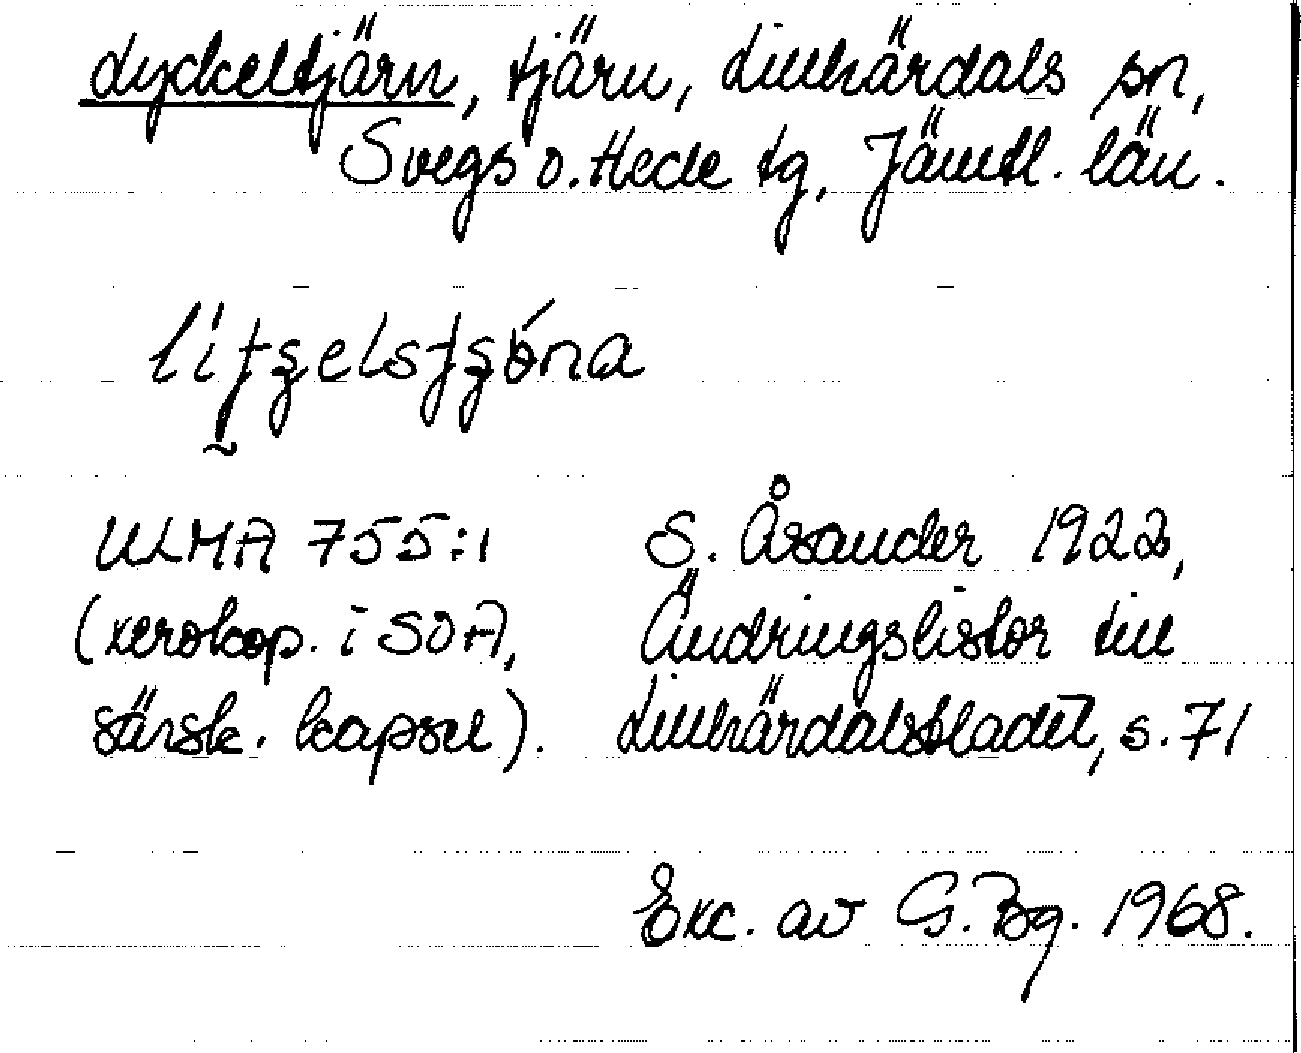 Lyckeltjärn, tjärn, Lillhärdals sn,
Svegs o. Hede tg, Jämtl. län.
ULMA 755:1
(xerokop. i SOA,
särsk. kapsel).
S. Åsander 1922,
Ändringslistor till
Lillhärdalsbladet, s. 71
Exc. av G. Bg. 1968.